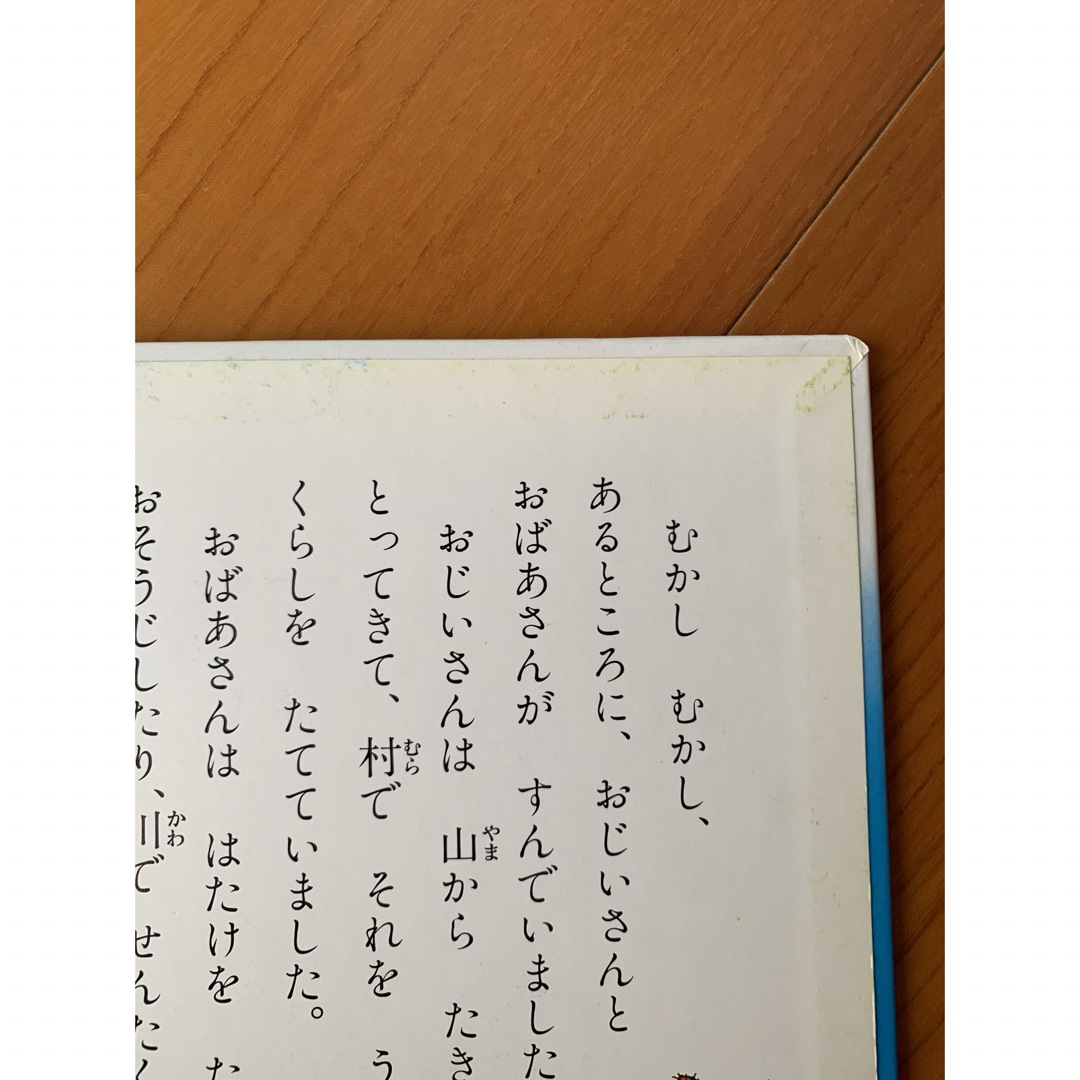 むかし むかし、
あるところに、 おじいさんと
おばあさんが すんでいました
おじいさんは 山から たき
とってきて、村で それを う
くらしを たてていました。
おばあさんは はたけを た
おそうじしたり、川で せんたく